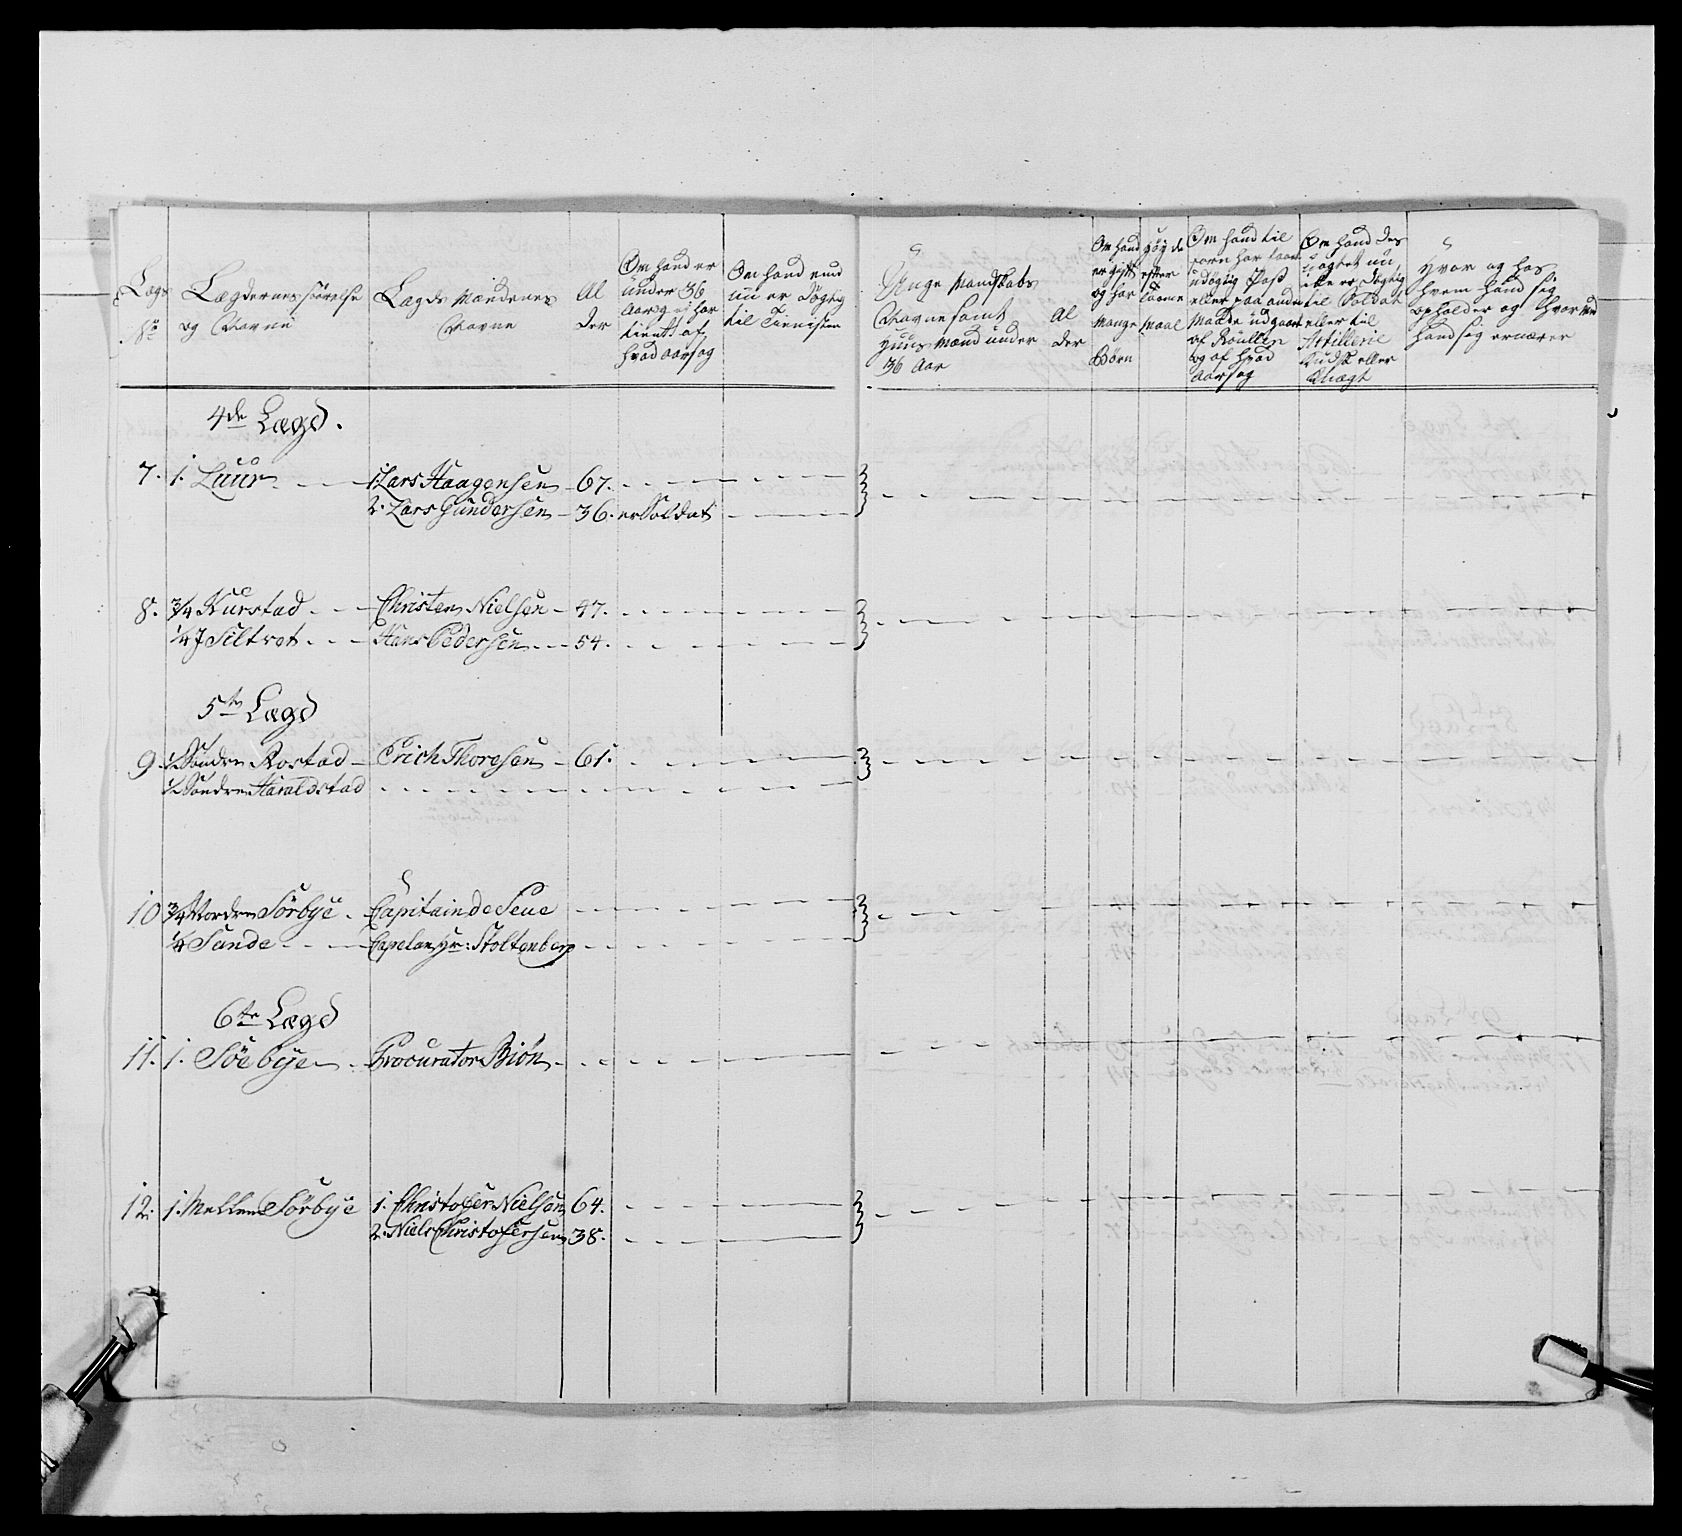 Lægs
No
Lægdernes Størelse
og Navne
Lægds Mændenes
Navne
Al
der
Om hand er
under 36
Aar og ei har
tient af
hvad aarsag
Om hand end
nu er døgtig
til Tienisten
Unge Mandskabs
Navne samt
Huus Mænd under
36 Aar
Al
der
Om hand
er gift
og har
Mange
Børn
høyde
efter
Maal
Om hand til
forn har
udøgtig Pass
eller paa anden
Maade udgaaet
af Roullen
og af hvad
aarsag
Om hand des
uagtet nu
ikke er døgtig
til Soldat
eller til
Artillerie
Kudsk eller
Knægt
Hvor og hos
hvem hand sig
opholder og hvor ved
hand sig ernærer
4de Lægd.
7. 1. Luur 1. Lars Haagensen 67.
2. Lars Gundersen 36. er Soldat
8. 3/4 Kurstad Christen Nielsen 47.
1/4 Siltvet Hans Pedersen 54.
5te Lægd
9. 1/2 Søndre Rostad Erich Thoresen 61.
1/2 Søndre Haraldstad
10 3/4 Nordre Sørbye Capitain de Seue
1/4 Sande Capelan Hr: Stoltenberg
6te Lægd
11. 1. Søebye Procurator Biøn
12. 1. Mellem Sørbye 1. Christofer Nielsen 64.
2. Niels Christofersen 38.